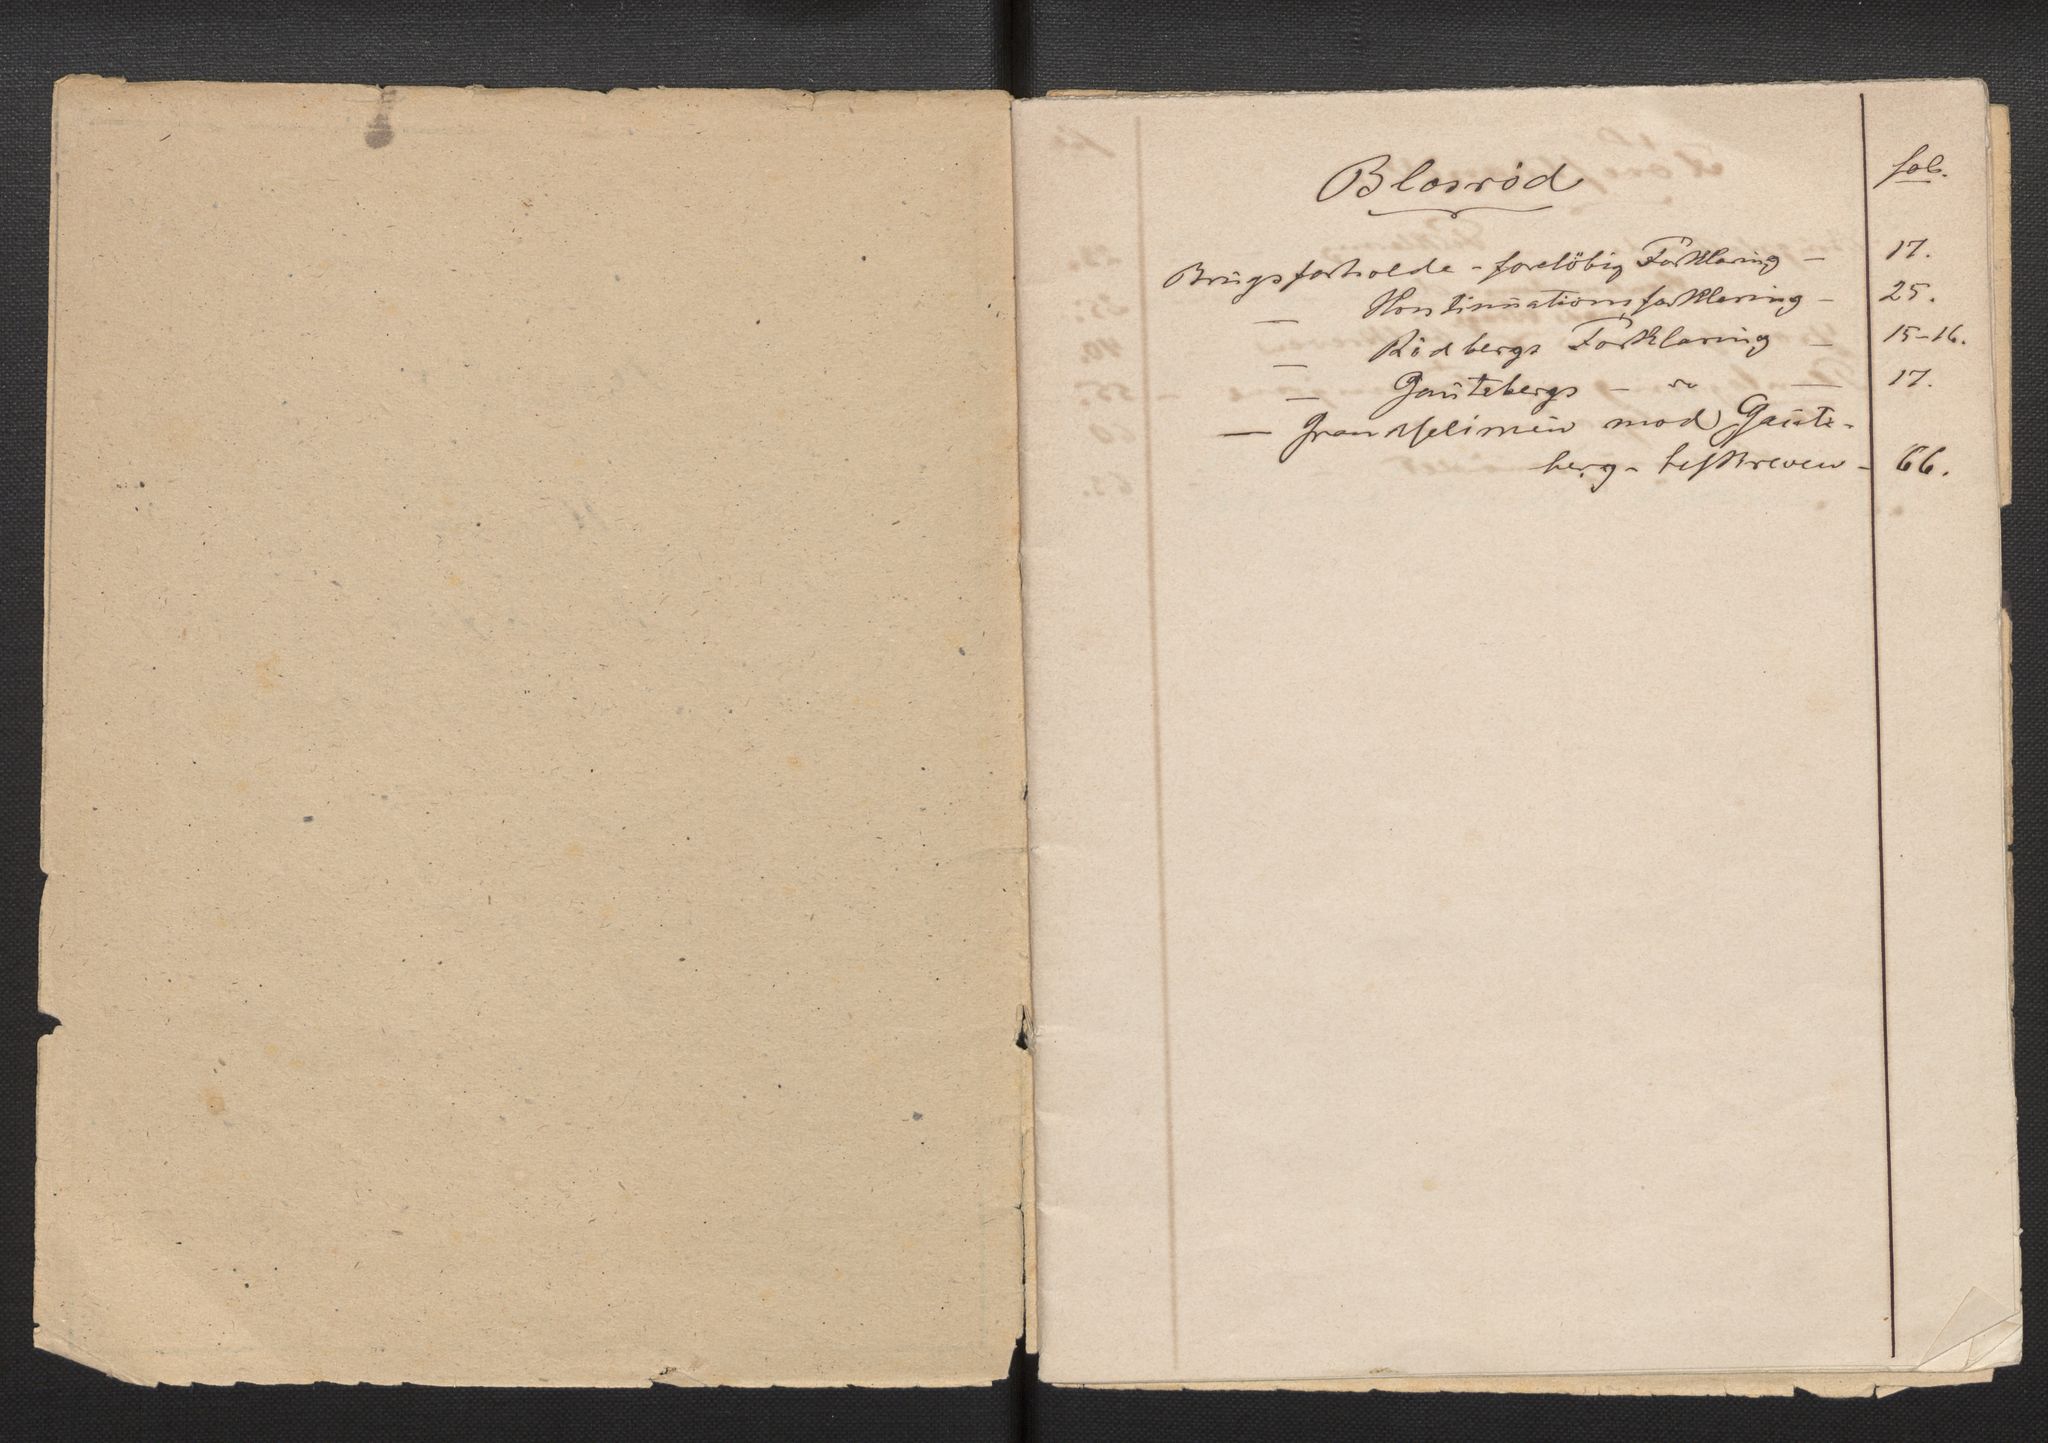 Blosröd
fol.
Brugsforholde - forelöbig Forklaring - 17.
— Kontinuationsforklaring - 25.
— Rödbergs Forklaring - 15-16.
— Gautebergs - do — 17.
— Grændselinien mod Gaute-
berg - beskreven - 66.